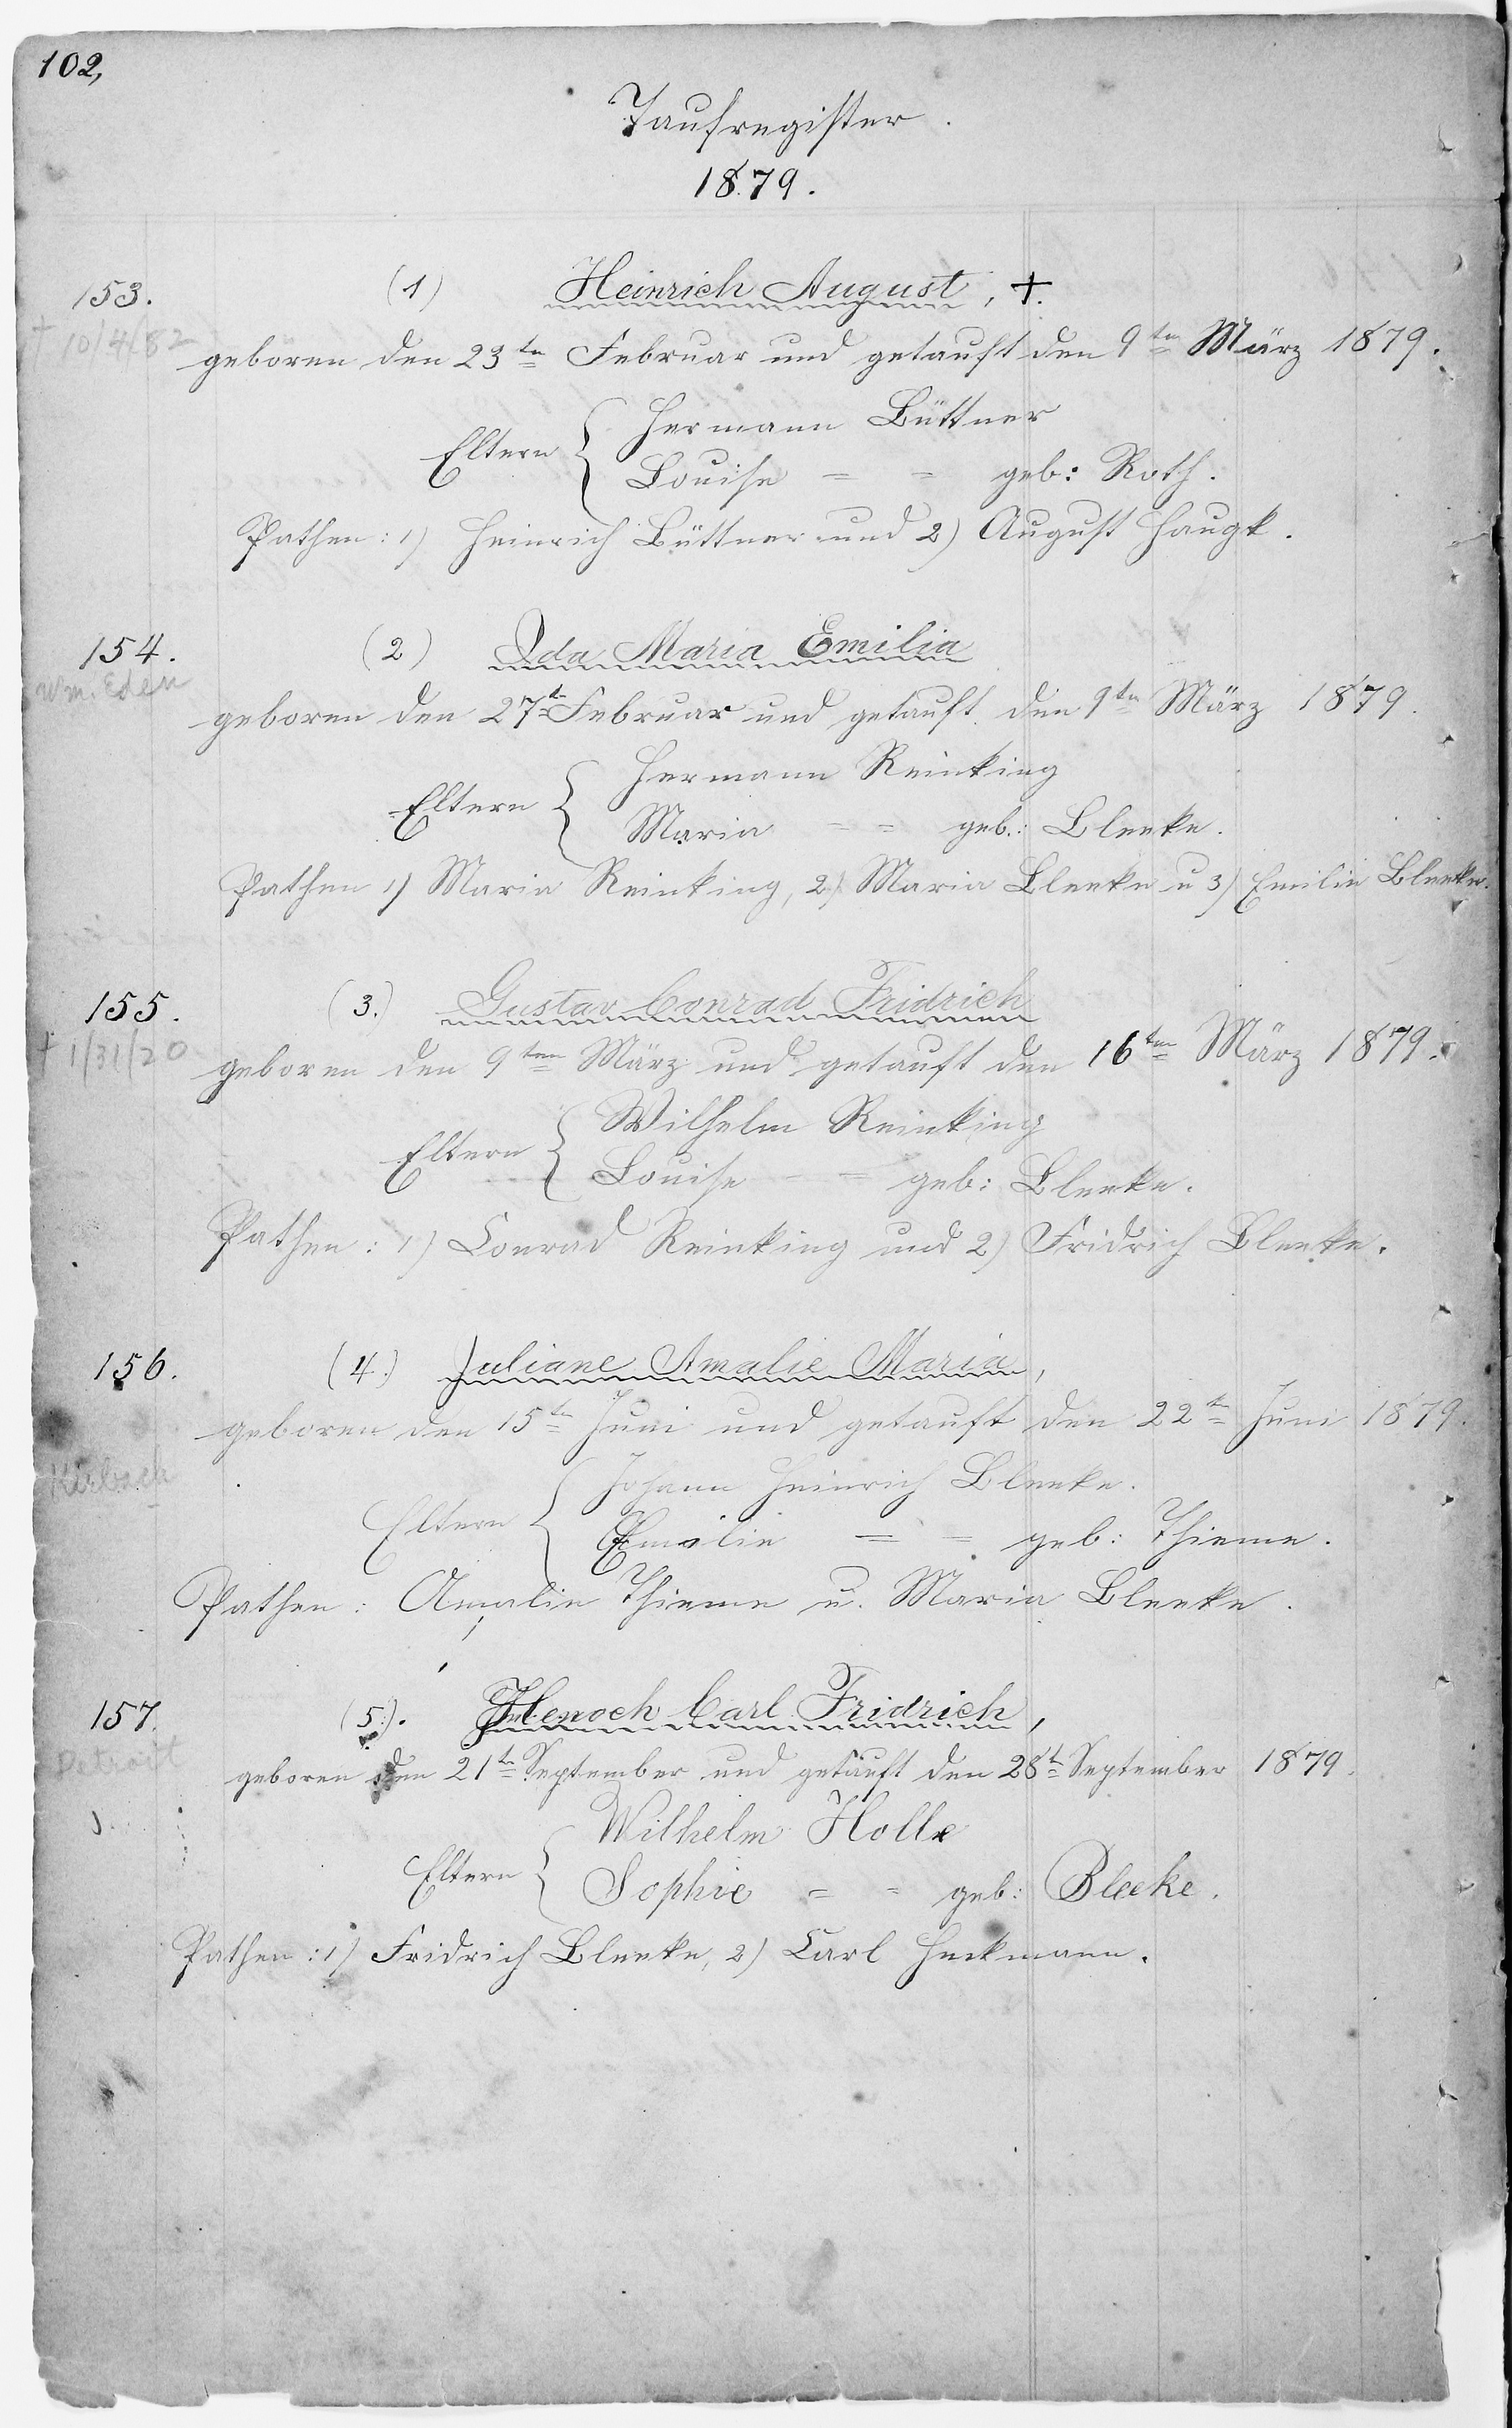 102,
Taufregister.
1879.
153. (1) Heinrich August, +.
+ 10/4/82
geboren den 23ten Februar und getauft den 9ten März 1879.
Eltern { Hermann Büttner
Louise = = geb: Roth.
Pathen: 1) Heinrich Büttner und 2) August Haugk.
154. (2) Ida Maria Emilia
Wm. Eden
geboren den 27ten Februar und getauft den 9ten März 1879.
Eltern { Hermann Reinking
Maria = = geb.: Bleeke.
Pathen 1) Maria Reinking, 2) Maria Bleeke u 3) Emilie Bleeke.
155. (3.) Gustav Conrad Fridrich
+ 1/31/20
geboren den 9ten März und getauft den 16ten März 1879.
Eltern { Wilhelm Reinking
Louise = = geb: Bleeke.
Pathen: 1) Conrad Reinking und 2) Fridrich Bleeke.
156. (4.) Juliane Amalie Maria,
geboren den 15ten Juni und getauft den 22ten Juni 1879.
Kirbach
Eltern { Johann Heinrich Bleeke.
Emilie = = geb: Thieme.
Pathen: Amalie Thieme u. Maria Bleeke.
157. (5.). Henoch Carl Fridrich,
Detroit
geboren den 21ten September und getauft den 28ten September 1879.
Eltern { Wilhelm Holle
Sophie = = geb: Bleeke.
Pathen: 1) Fridrich Bleeke, 2) Carl Heckmann.